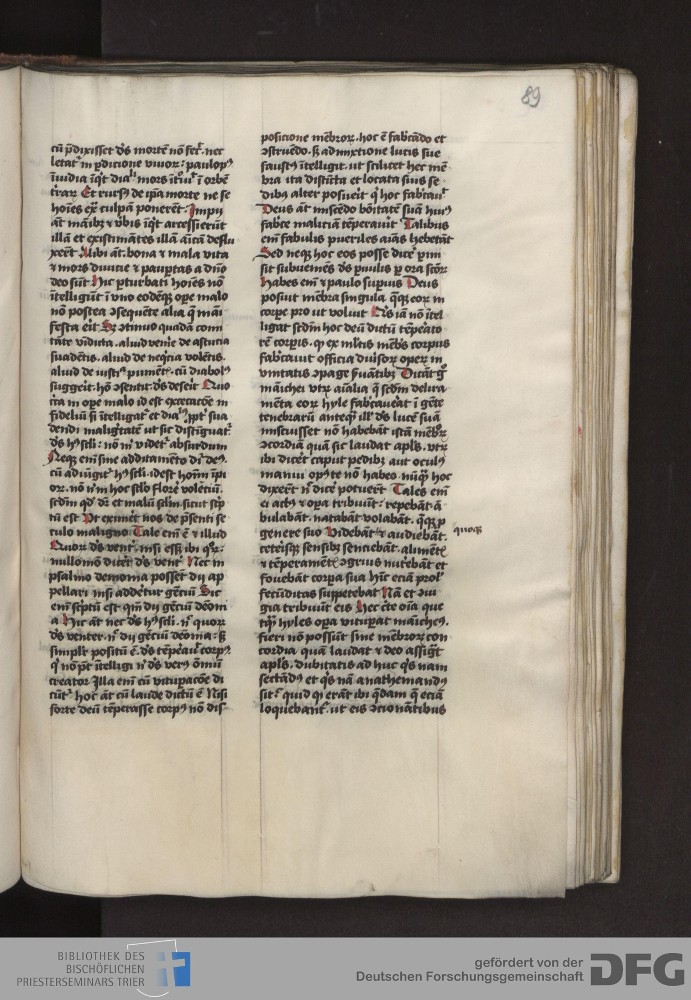 89
cū p̄dixisset dꝰs mortē nō fec̄. nec
letat᷑ in p̱dicione viuoꝝ: paulopꝰ
īuidia īq̄t diaƀ mors ītᷓuiᷓ ī orbē
trarꝝ Et rursꝰ de ip̄a morte ne se
hoīes ext̄ culpā ponerēt. Impij
āt manibꝫ ⁊ v̄bis īq̄t arcessierūt
illā et existimātes illā amicā deflu
xerūt Alibi āt. bona ⁊ mala vita
⁊ mors diuicie ⁊ paup̱tas a dn̄o
deo sūt Hic p̱turbati hoīes nō
ītelligūt ī vno eodēqꝫ ope malo
nō postea ꝯsequēte alia q̄ mani
festa erit Sꝫ ꝯtinuo quadā comi
tate vīdicta. aliud venīe de astucia
suadētis. aliud de neq̄cia volētis.
aliud de iusticia puniētis. cū diabolꝰ
suggerit. hō ꝯsentit. dꝰs deserit Quo
circa in ope malo id est excecacōe in
fideliū si ītelligat᷑ et diaƀ ꝓpt̄ sua
dendi malignitatē ut sic distīguat᷑.
dꝰs hꝰ scl̄i: nō m̄ videt᷑ absurdum
Neqꝫ em̄ sine additamēto dr̄ deꝰ.
cū adiūgit᷑ hꝰ scl̄i. idest hoīm īpi
oꝝ. nō n̄ in hoc scl̄o florē volētiū.
scd̄m qd̄ dr̄ et malū scl̄m. sicut scp̄
tū est Vt eximēt nos de p̄senti se
culo maligno Tale em̄ ē ⁊ illud
Quoꝝ dꝰs vent᷑. nisi essꝫ ibi qᵒꝝ.
nullomō dicēt dꝰs vent᷑ Nec in
psalmo demonia possent dij ap
pellari nisi addetur gēciū Sic
em̄ sc̄ptū est qm̄ dij gēciū dēoni
a Hic āt nec dꝰs hꝰ scl̄i. nͨ quoꝝ
dꝰs venter. nͨ dij gēciū dēonia: sꝫ
simplr̄ positū ē. dꝰs tēperauit corpꝰ
q̇ nō pōt ītelligi nͥ dꝰs verꝰ omniū
creator Illa em̄ cū vitupacōe di
cūtᷓ. hoc āt cū laude dictū ē Nisi
forte deū tēperasse corpꝰ nō dis
posicione mēbroꝝ. hoc ē fab̄cādo et
ꝯstruēdo. sꝫ admixtione lucis sue
faustꝰ ītelligit. ut scilicet hec mē
bra ita distīcta et locata suis se
dibꝫ alter posuerit q̇ hoc fab̄cauit
Deus āt miscēdo bōitatē suā huiꝰ
fabr̄ce maliciā tēperauit Talibus
em̄ fabulis pueriles aīas hebetāt
Sed neqꝫ hoc eos posse dicē p̱mi
sit subueniēs dꝰs p̱uulis p̱ ora sc̄oꝝ
Habes em̄ ⁊ paulo supiꝰ Deus
posuit mēbra singula q̇qꝫ eoꝝ in
corpe pro ut voluit Qͥs iā nō ītel
ligat scd̄m hoc deū dictū tēperato
rē corpis. q̇ ex mltis mēbris corpus
fabricauit officia diūsoꝝ opeꝝ in
vnitatis ꝯpage s̄uātibꝫ Dicāt g̊
māichei vtꝝ aīalia q̄ scd̄m delira
mēta eoꝝ hyle fab̄caueat ī gēte
tenebrarū anteq̄ illꝭ dꝰs lucē suā
miscuisset nō habebāt istā mēbroꝝ
ꝯcordiā quā sic laudat apl̄s. vtꝝ
ibi dicēt caput pedibꝫ aut oculꝰ
manui opꝰ te nō habeo. nūq̄ hoc
dixerūt nͨ dicē potuerūt Tales em̄
ei actꝰ ⁊ opa tribuūt: repebāt ā
bulabāt. natabāt volabāt. q̄qꝫ p̱
genere suo Videbāt ⁊ audiebāt.
ceterisqꝫ sensibꝫ sentiebāt. alimētꝭ
⁊ tēperamētꝭ ꝯgruis nutebāt et
fouebāt corpa sua hīc eciā prolꝭ
fecūditas suppetebat Nā et ꝯiu
gia tribuūt eis Hec c̄te oīa que
tq̄ hyles opa vitupāt maichei.
fieri nō possūt sine mēbroꝝ con
cordia quā laudat ⁊ deo assigt
apl̄s. dubitatis ad huc qͥs nam
sectādꝰ et qͥs nā anathemandꝰ
sitᷓ quid q̇ erāt ibi q̄dam q̄ eciā
loquebant᷑. ut eis ꝯcionātibus
quoqꝫ
BIBLIOTHEK DES
BISCHÖFLICHEN
PRIESTERSEMINARS TRIER
gefördert von der
Deutschen Forschungsgemeinschaft
DFG